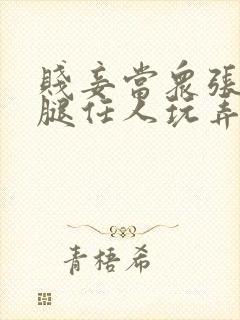 賤妾當衆張
腿任人玩弄
青梧希